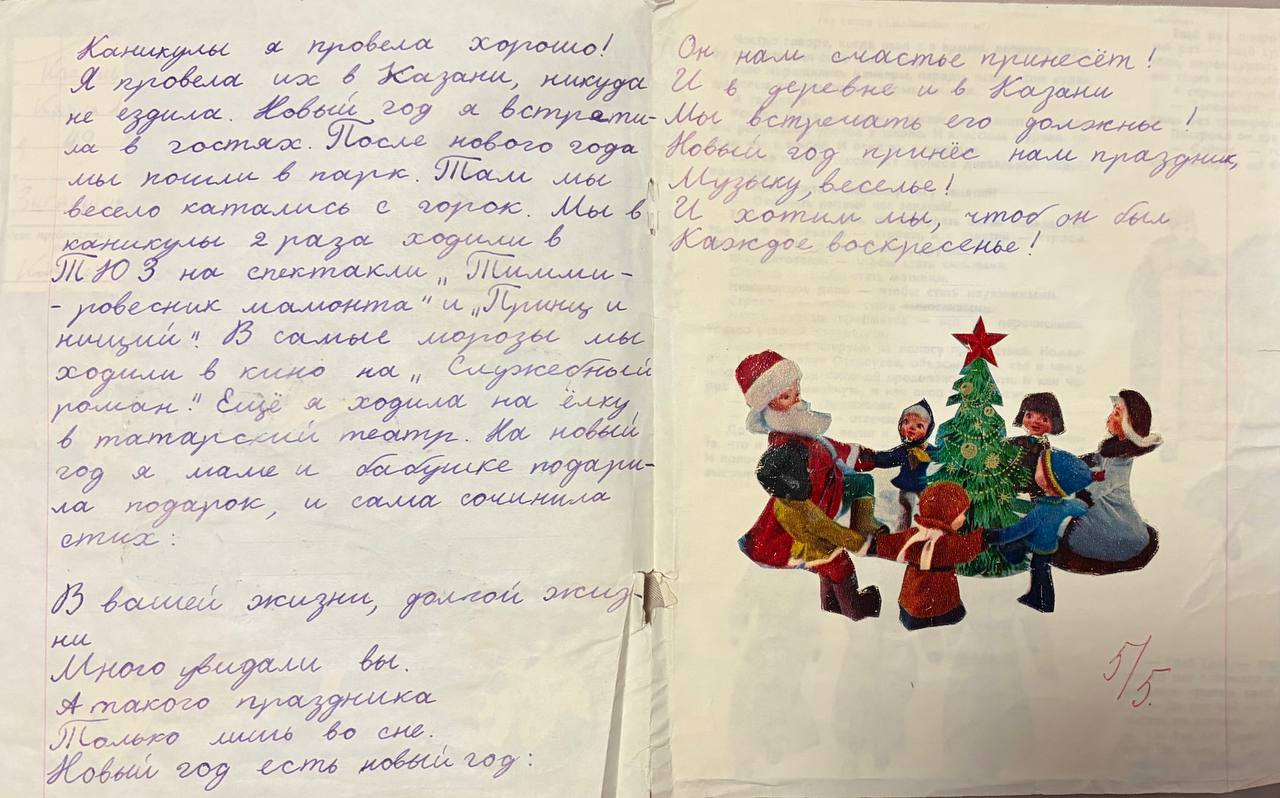 Каникулы я провела хорошо!
Я провела их в Казани, никуда
не ездила. Новый год я встрети-
ла в гостях. После нового года
мы пошли в парк. Там мы
весело катались с горок. Мы в
каникулы 2 раза ходили в
ТЮЗ на спектакли „Тимми-
- ровесник мамонта" и „Принц и
нищий". В самые морозы мы
ходили в кино на „Служебный
роман." Ещё я ходила на ёлку
в татарский театр. На новый
год я маме и бабушке подари-
ла подарок, и сама сочинила
стих:
В вашей жизни, долгой жиз-
ни
Много увидали вы.
А такого праздника
Только лишь во сне.
Новый год есть новый год:
Он нам счастье принесёт!
И в деревне и в Казани
Мы встречать его должны!
Новый год принёс нам праздник,
Музыку, веселье!
И хотим мы, чтоб он был
Каждое воскресенье!
5/5.